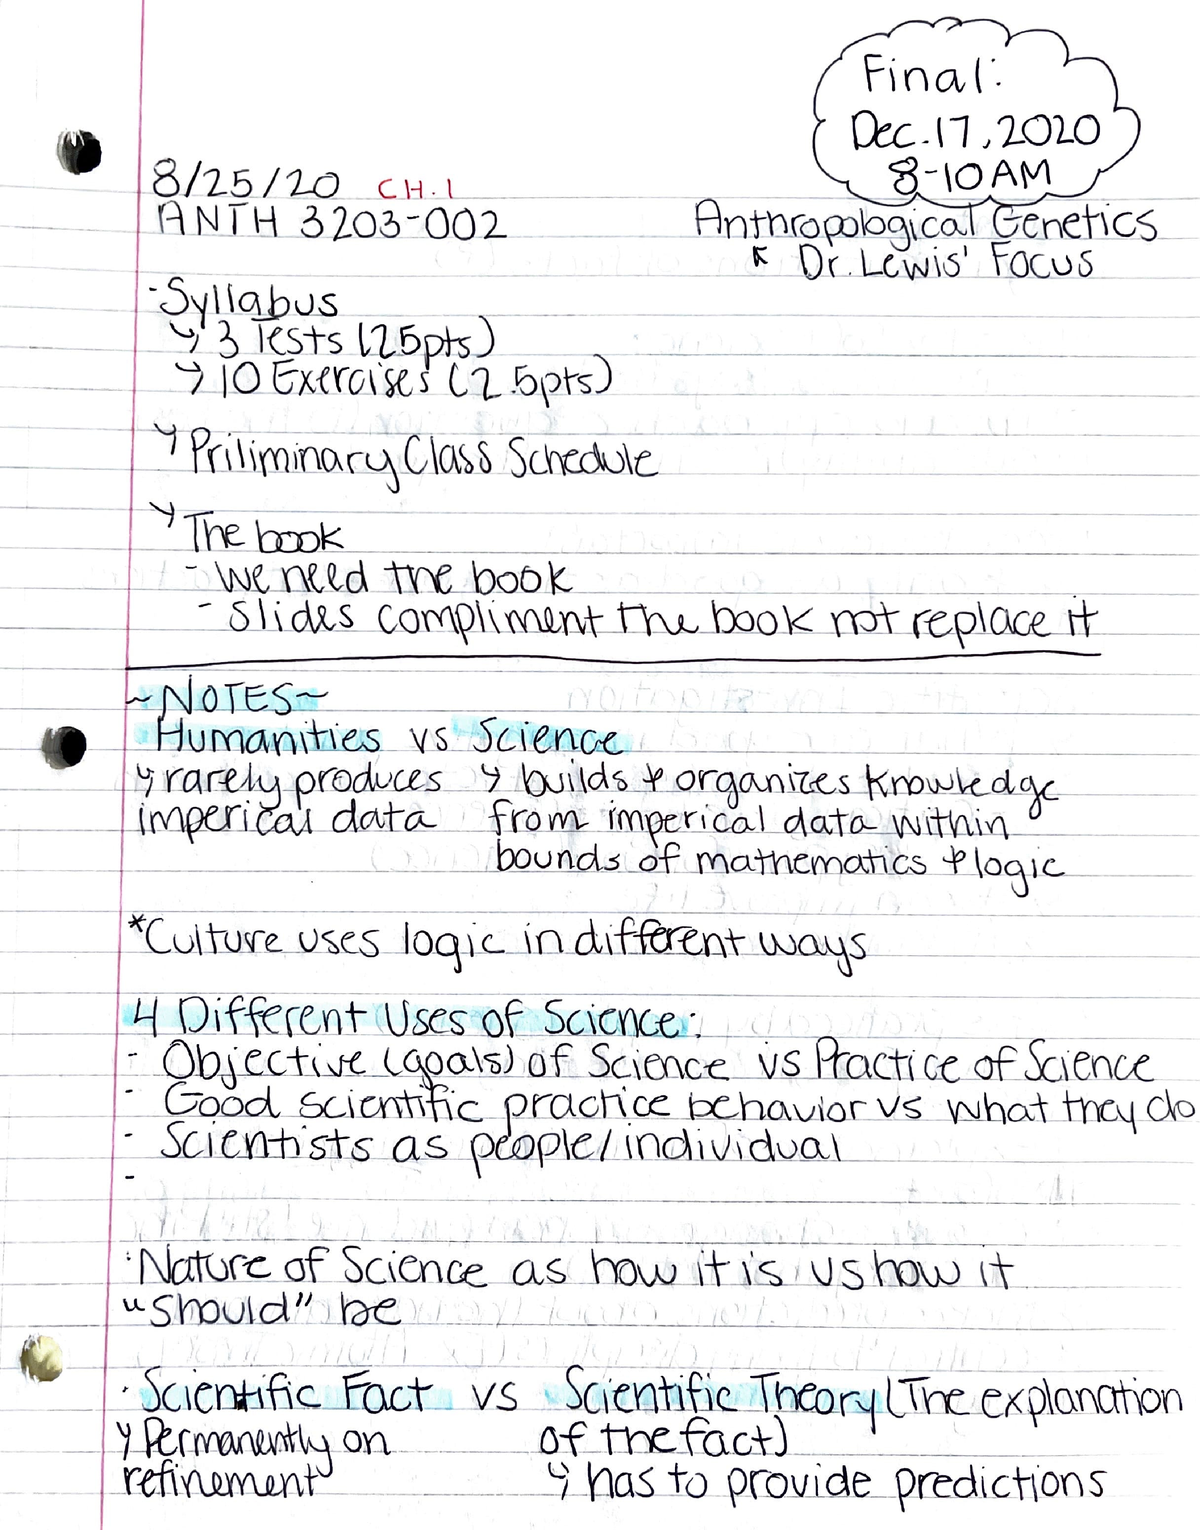 Final:
Dec. 17, 2020
8-10AM
8/25/20 CH. 1
ANTH 3203-002
Anthropological Genetics
↖ Dr. Lewis' Focus
- Syllabus
↳ 3 Tests (25pts)
↳ 10 Exercises (2.5pts)
↳ Priliminary Class Schedule
↳ The book
- we need the book
- slides compliment the book not replace it
~NOTES~
Humanities vs Science
↳ rarely produces ↳ builds & organizes knowledge
imperical data from imperical data within
bounds of mathematics & logic
*Culture uses logic in different ways
4 Different Uses of Science:
- Objective (goals) of Science vs Practice of Science
- Good scientific practice behavior vs what they do
- Scientists as people/individual
-
· Nature of Science as how it is vs how it
"should" be
· Scientific Fact vs Scientific Theory (The explanation
↳ Permanently on of the fact)
refinement ↳ has to provide predictions